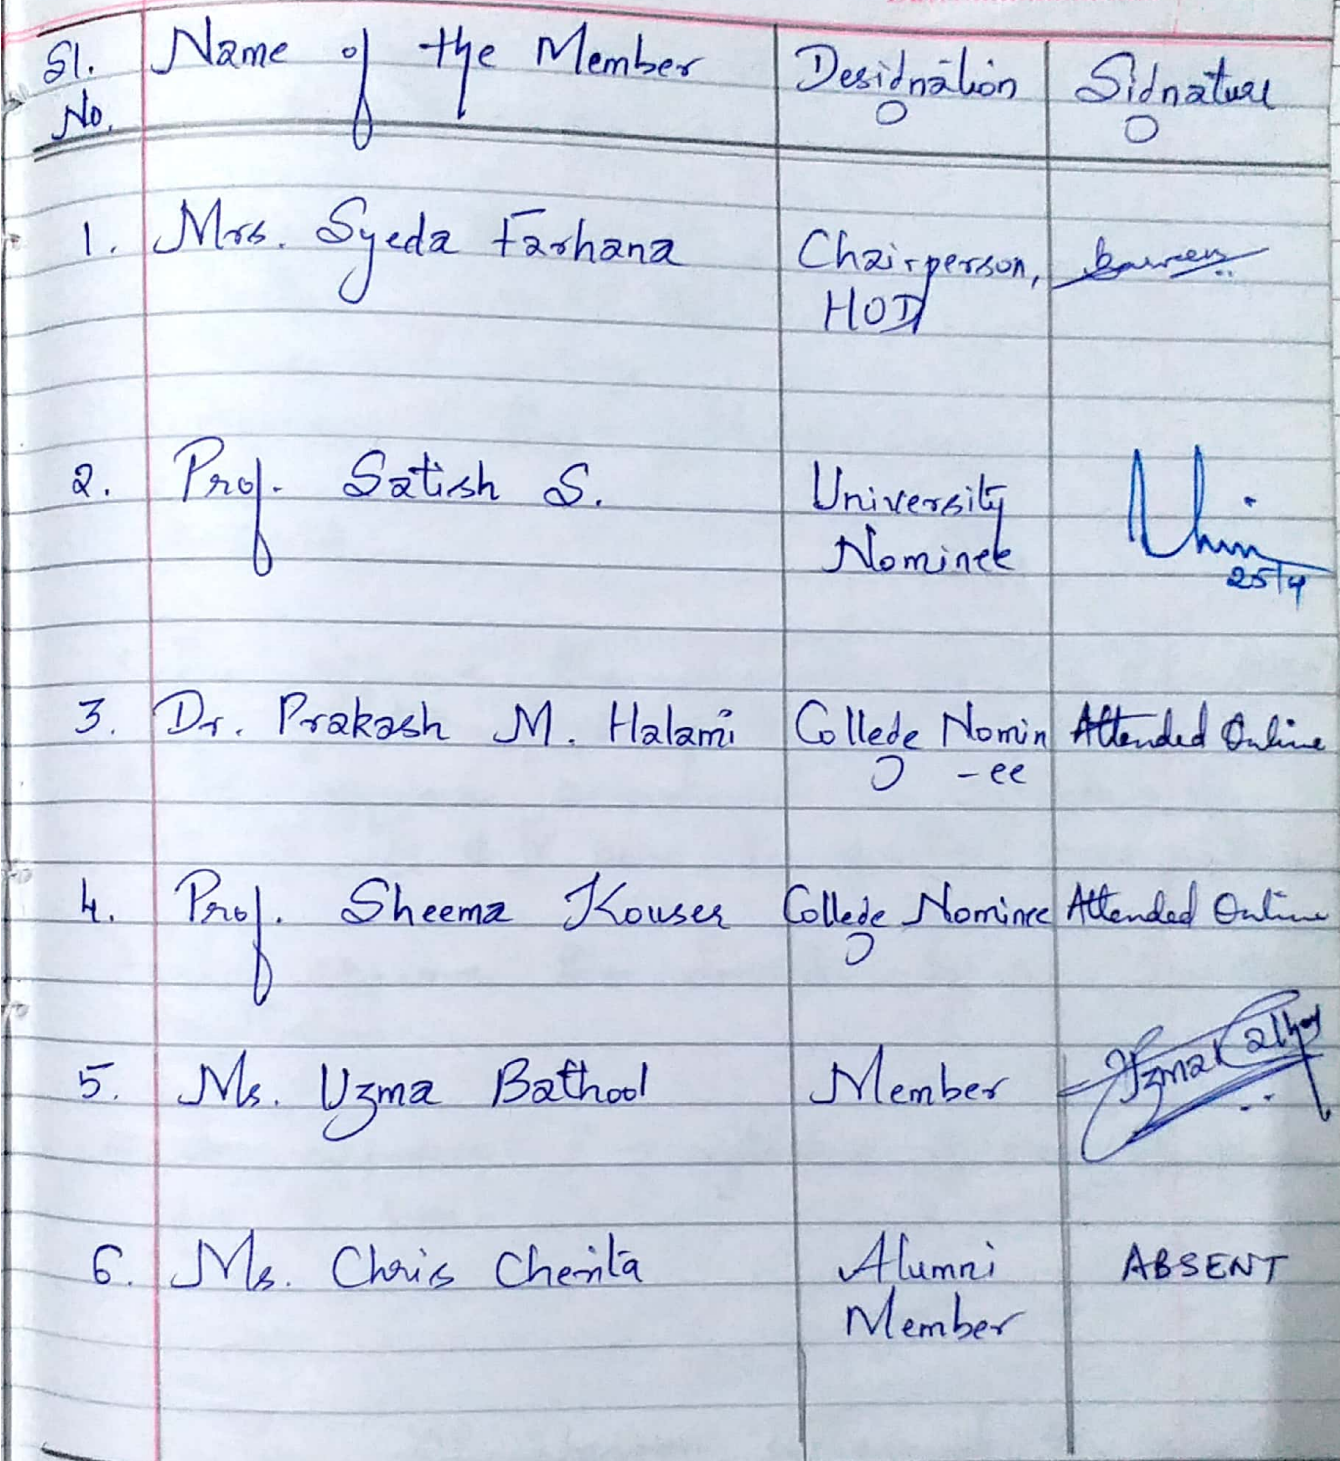 Sl. No. Name of the Member Designation Signature
1. Mrs. Syeda Farhana Chairperson,
HOD
2. Prof. Satish S. University
Nominee
25/4
3. Dr. Prakash M. Halami College Nomin Attended Online
-ee
4. Prof. Sheema Kouser College Nominee Attended Online
5. Ms. Uzma Bathool Member
6. Ms. Chris Cherita Alumni ABSENT
Member